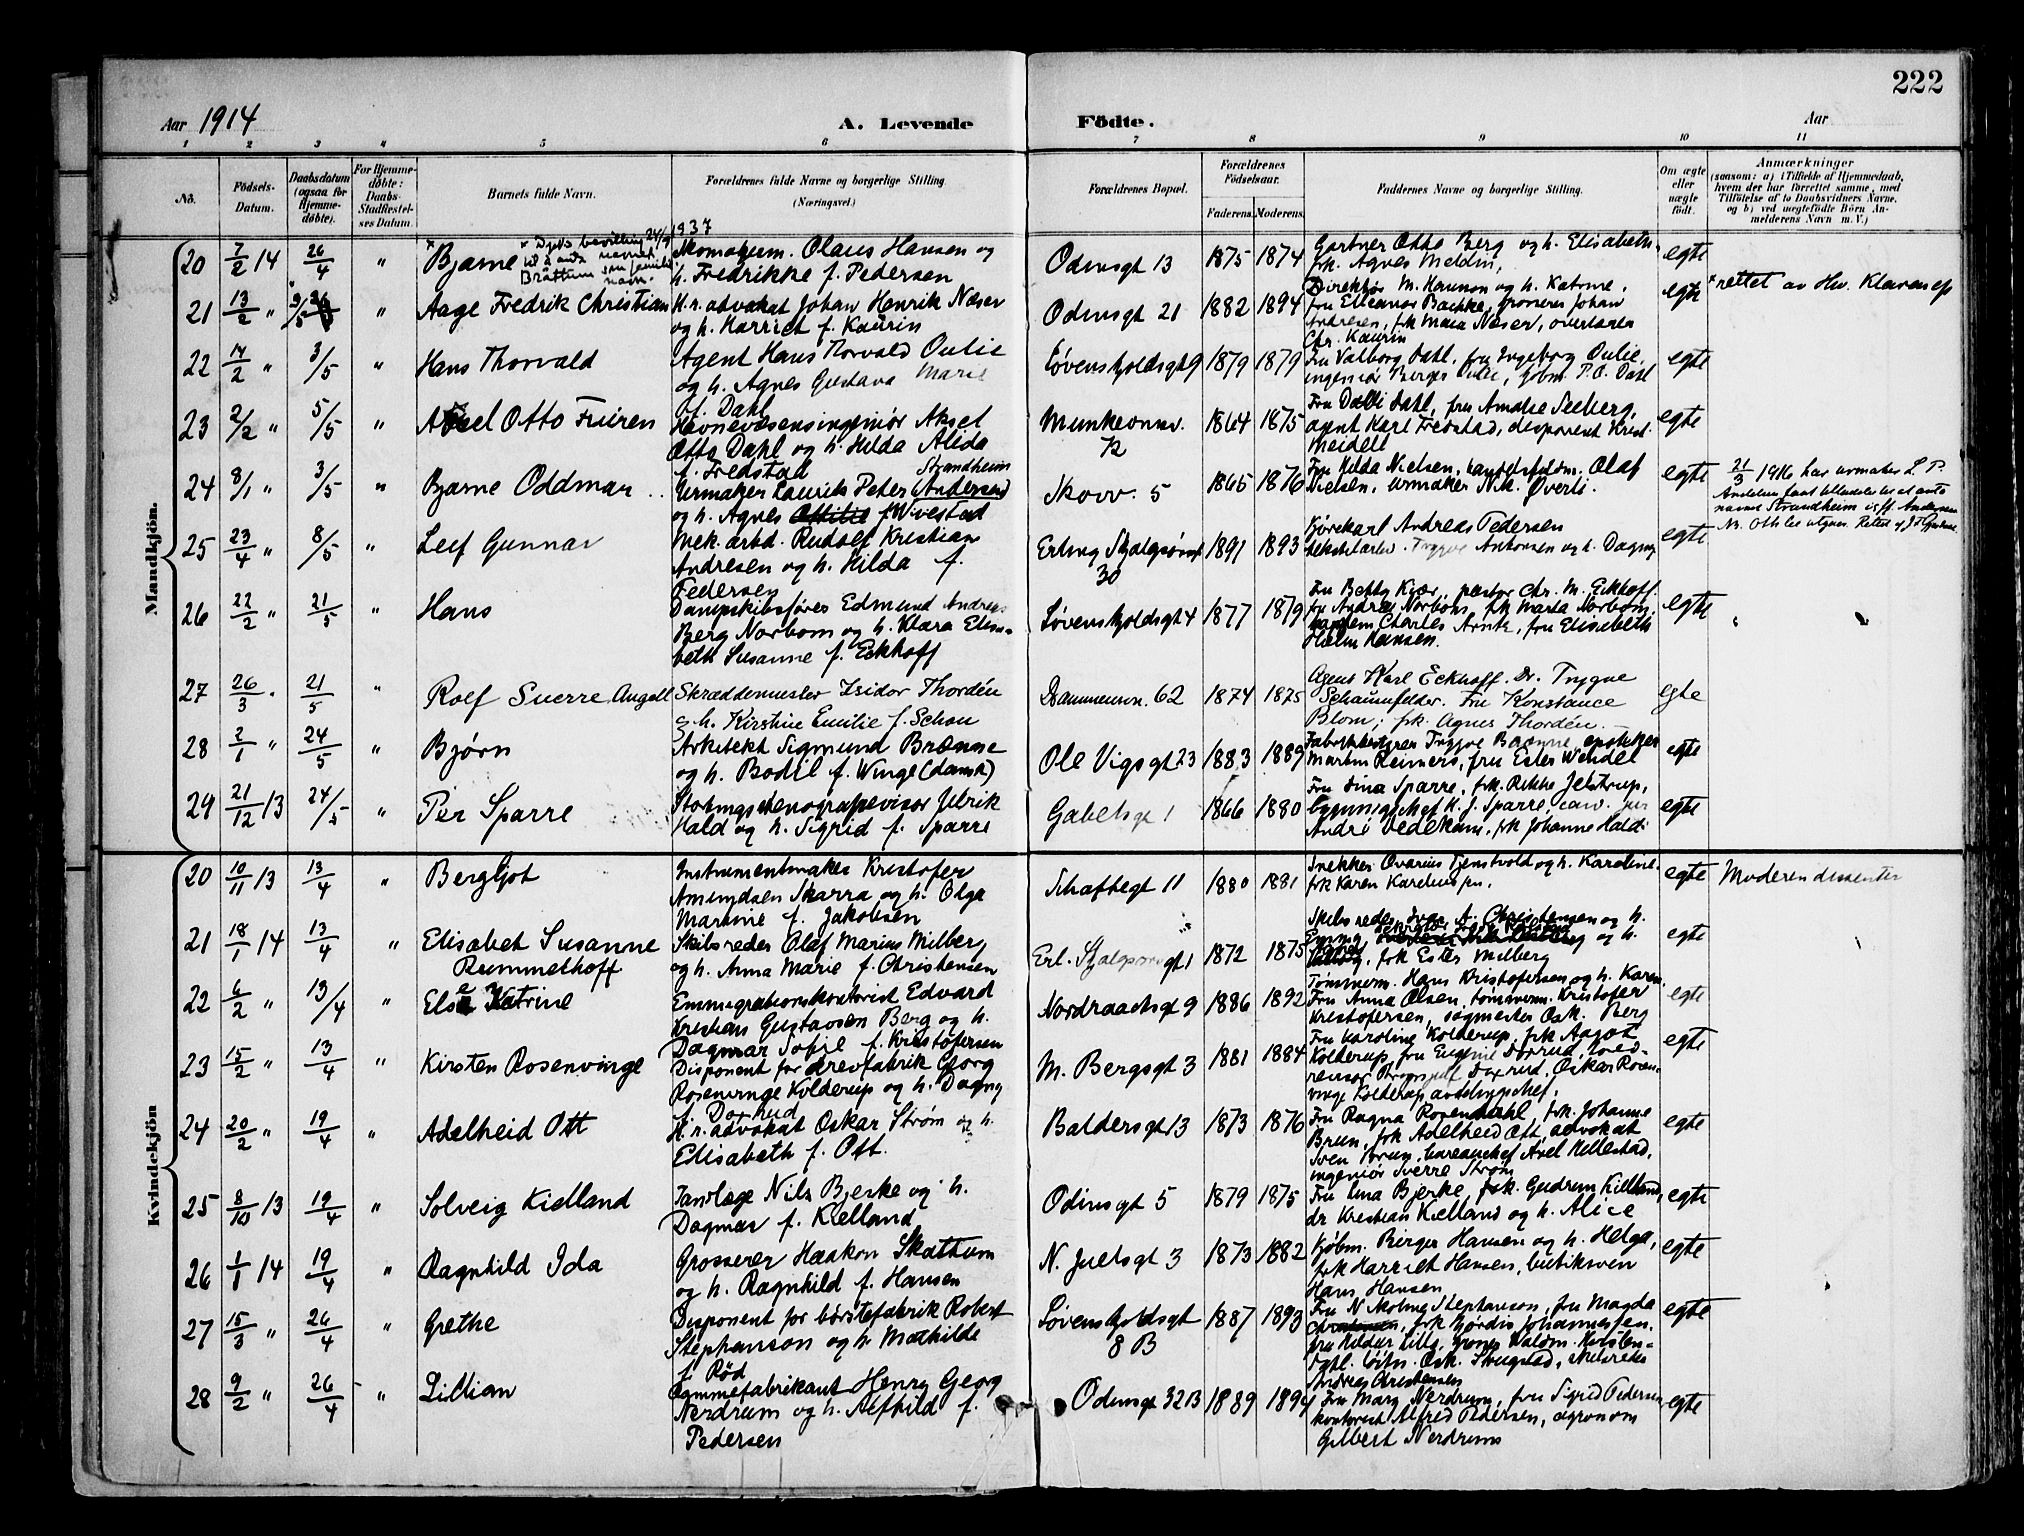 222
Aar 1914 A. Levende Födte. Aar
1 2 3 4 5 6 7 8 9 10 11
No. Födsels-Datum. Daabsdatum (ogsaa for Hjemmedöbte). For Hjemmedöbte: Daabs-Stadfæstelses Datum. Barnets fulde Navn. Forældrenes fulde Navne og borgerlige Stilling. (Næringsvei.) Forældrenes Bopæl. Forældrenes Födselsaar. Faderens. Moderens. Faddernes Navne og borgerlige Stilling. Om ægte eller uægte födt. Anmærkninger (saasom: a) i Tilfælde af Hjemmedaab, hvem der har forrettet samme, med Tilföielse af to Daabsvidners Navne. og b) ved uægtefödte Börn Anmelderens Navn m. V.)
Mandkjön.
20 7/2 14 26/4 " Bjarne × bevilling 24/9 1937 til å anta navnet Bråttum som familienavn.
Olaus Hansen og h. Fredrikke f. Pedersen
Odinsgt 13 1875 1874
Gartner Otto Berg og h. Elisabeth. frk. Agnes
egte
21 13/2 " 9/5 " Aage Fredrik Christian
H.r. advokat Johan Henrik Næser og h. Harriet f. Kaurin
Odinsgt 21 1882 1894
Direktør M. Hannon og h. Katrine, fru Elleanor Backke, grosserer Johan Andresen, frk Maia Næser, overlærer Chr. Kaurin
egte × rettet av Hv. Klaveness
22 14/2 " 3/5 " Hans Thorvald
Agent Hans Thorvald Oulie og h. Agnes Gustava Marie f. Dahl
Løvenskjoldsgt 9 1879 1879
Fru Valborg Dahl, fru Ingeborg Oulie, ingeniør Birger Oulie, kjøbm. P.O. Dahl
egte
23 2/2 " 5/5 " Axel Otto Friren
Havnevæsensingeniør Aksel Otto Dahl og h. Hilda Alida f. Fredstad
Munkedamsv. 72 1864 1875
Fru Dahl, fru Amalie Seeberg, agent Karl Fredstad, disponent Krist. Meidell
egte
24 8/1 " 3/5 " Bjarne Oddmar
Urmaker Laurits Peter Andersen Strandheim og h. Agnes f. Wivestad
Skovv. 5 1865 1876
Fru Hilda Nielsen, Olaf Nielsen, urmaker Nik. Øverli.
egte 21/3 1916 har urmaker L. P. Andersen faat tilladelse til at anta navnet Strandheim
25 23/4 " 8/5 " Leif Gunnar
Mek. arbd. Rudolf Kristian Andresen og h. Hilda f. Pedersen
Erling Skjalgsønsgt 30 1891 1893
Kjørekarl Andreas Pedersen Trygve Antonsen og h. Dagny
egte
26 22/2 " 21/5 " Hans
Dampskibsfører Edmund Andreas Berg Norbom og h. Klara Elisabeth Susanne f. Eckhoff
Løvenskjoldsgt 4 1877 1879
Fru Betty Kiær, pastor Chr. M. Eckhoff. fru Andrea Norbom, frk Marta Norbom, Charles Arntz, fru Elisabeth Holm Hansen.
egte
27 26/3 " 21/5 " Rolf Sverre Angell
Skræddermester Isidor Thordén & h. Kirstine Emilie f. Schou
Drammensv. 62 1874 1875
Agent Karl Eckhoff. Dr. Trygve Schaumfelder. Fru Konstance Blom; frk. Agnes Thordén.
egte
28 2/1 " 24/5 " Bjørn
Arkitekt Sigmund Brænne og h. Bodil f. Winge (dansk)
Ole Vigsgt 23 1883 1889
Fabrikbestyrer Trygve Brænne, apoteker Martin Reimers, fru Ester Wendel
egte
29 21/12 13 24/5 " Per Sparre
Stortingsstenografrevisor Ulrik Hald og h. Sigrid f. Sparre
Gabelsgt 1 1866 1880
Fru Dina Sparre, frk. Rikke Jelstrup, bygningschef H. J. Sparre, cand. jur André Vedekam, frk Johanne Hald
egte
Kvindekjön
20 10/11 13 13/4 " Bergljot
Instrumentmaker Kristofer Amundsen Skarra og h. Olga Marthine f. Jakobsen
Schaftegt 11 1880 1881
Snekker Ovarius Tjenstvold og h. Karoline. frk Karen Karelius
egte Moderen dissenter
21 18/1 14 13/4 " Elisabet Susanne Rummelhoff
Skibsreder Olaf Marius Milberg og h. Anna Marie f. Christensen
Erl. Skjalgsønsgt 1 1872 1875
Skibsreder Ivar A. Christensen og h. og h. frk Ester Milberg
egte
22 6/2 " 13/4 " Else Katrine
Emmigrationskontorist Edvard Kristian Gustavsen Berg og h. Dagmar Sofie f. Kristofersen
Nordraachsgt 9 1886 1892
Tømmerm. Hans Kristofersen og h. Karen. Fru Anna Olsen, tømmerm. Kristofer Kristofersen, sagmester Osk. Berg
egte
23 15/2 " 13/4 " Kirsten Rosenvinge
Disponent for drevfabrik Georg Rosenvinge Kolderup og h. Dagny f. Doxrud
M. Bergsgt 3 1881 1884
Fru Karoline Kolderup, frk Aagot Kolderup, fru Eugenie Doxrud, Doxrud, Oskar Rosenvinge Kolderup, avdelingschef.
egte
24 20/2 " 19/4 " Adelheid Ott
H.r. advokat Oskar Strøm og h. Elisabeth f. Ott.
Baldersgt 13 1873 1876
Fru Ragna Rosendahl, frk. Johanne Brun, frk Adelheid Ott, advokat Sven Brun, bureauchef Axel Hellestad, ingeniør Sverre Strøm
egte
25 8/10 13 19/4 " Solveig Kielland
Tandlæge Nils Bjerke og h. Dagmar f. Kielland
Odinsgt 5 1879 1875
Fru Lina Bjerke, frk. Gudrun Kielland, dr Kristian Kielland og h. Alice
egte
26 1/1 14 19/4 " Ragnhild Ida
Grosserer Haakon Skattum og h. Ragnhild f. Hansen
N. Juelsgt 3 1873 1882
Kjøbm. Birger Hansen og h. Helga, frk Harriet Hansen, butiksven Hans Hansen
egte
27 15/3 " 26/4 " Grethe
Disponent for børstefabrik Robert Stephanson og h. Mathilde f. Rød
Løvenskjoldsgt 8 B 1887 1893
Fru N Stephanson, fru Magda frk Hjørdis Johannesen. fru Hildur Lills, Osk. Skugstad, skibsreder Andreas Christensen
egte
28 9/2 " 26/4 " Lillian
Gummefabrikant Henry Georg Nerdrum og h. Alfhild f. Pedersen
Odinsgt 32 B 1889 1894
Fru Mary Nerdrum, fru Sigrid Pedersen kontorist Alfred Pedersen, agronom Gilbert Nerdrum
egte